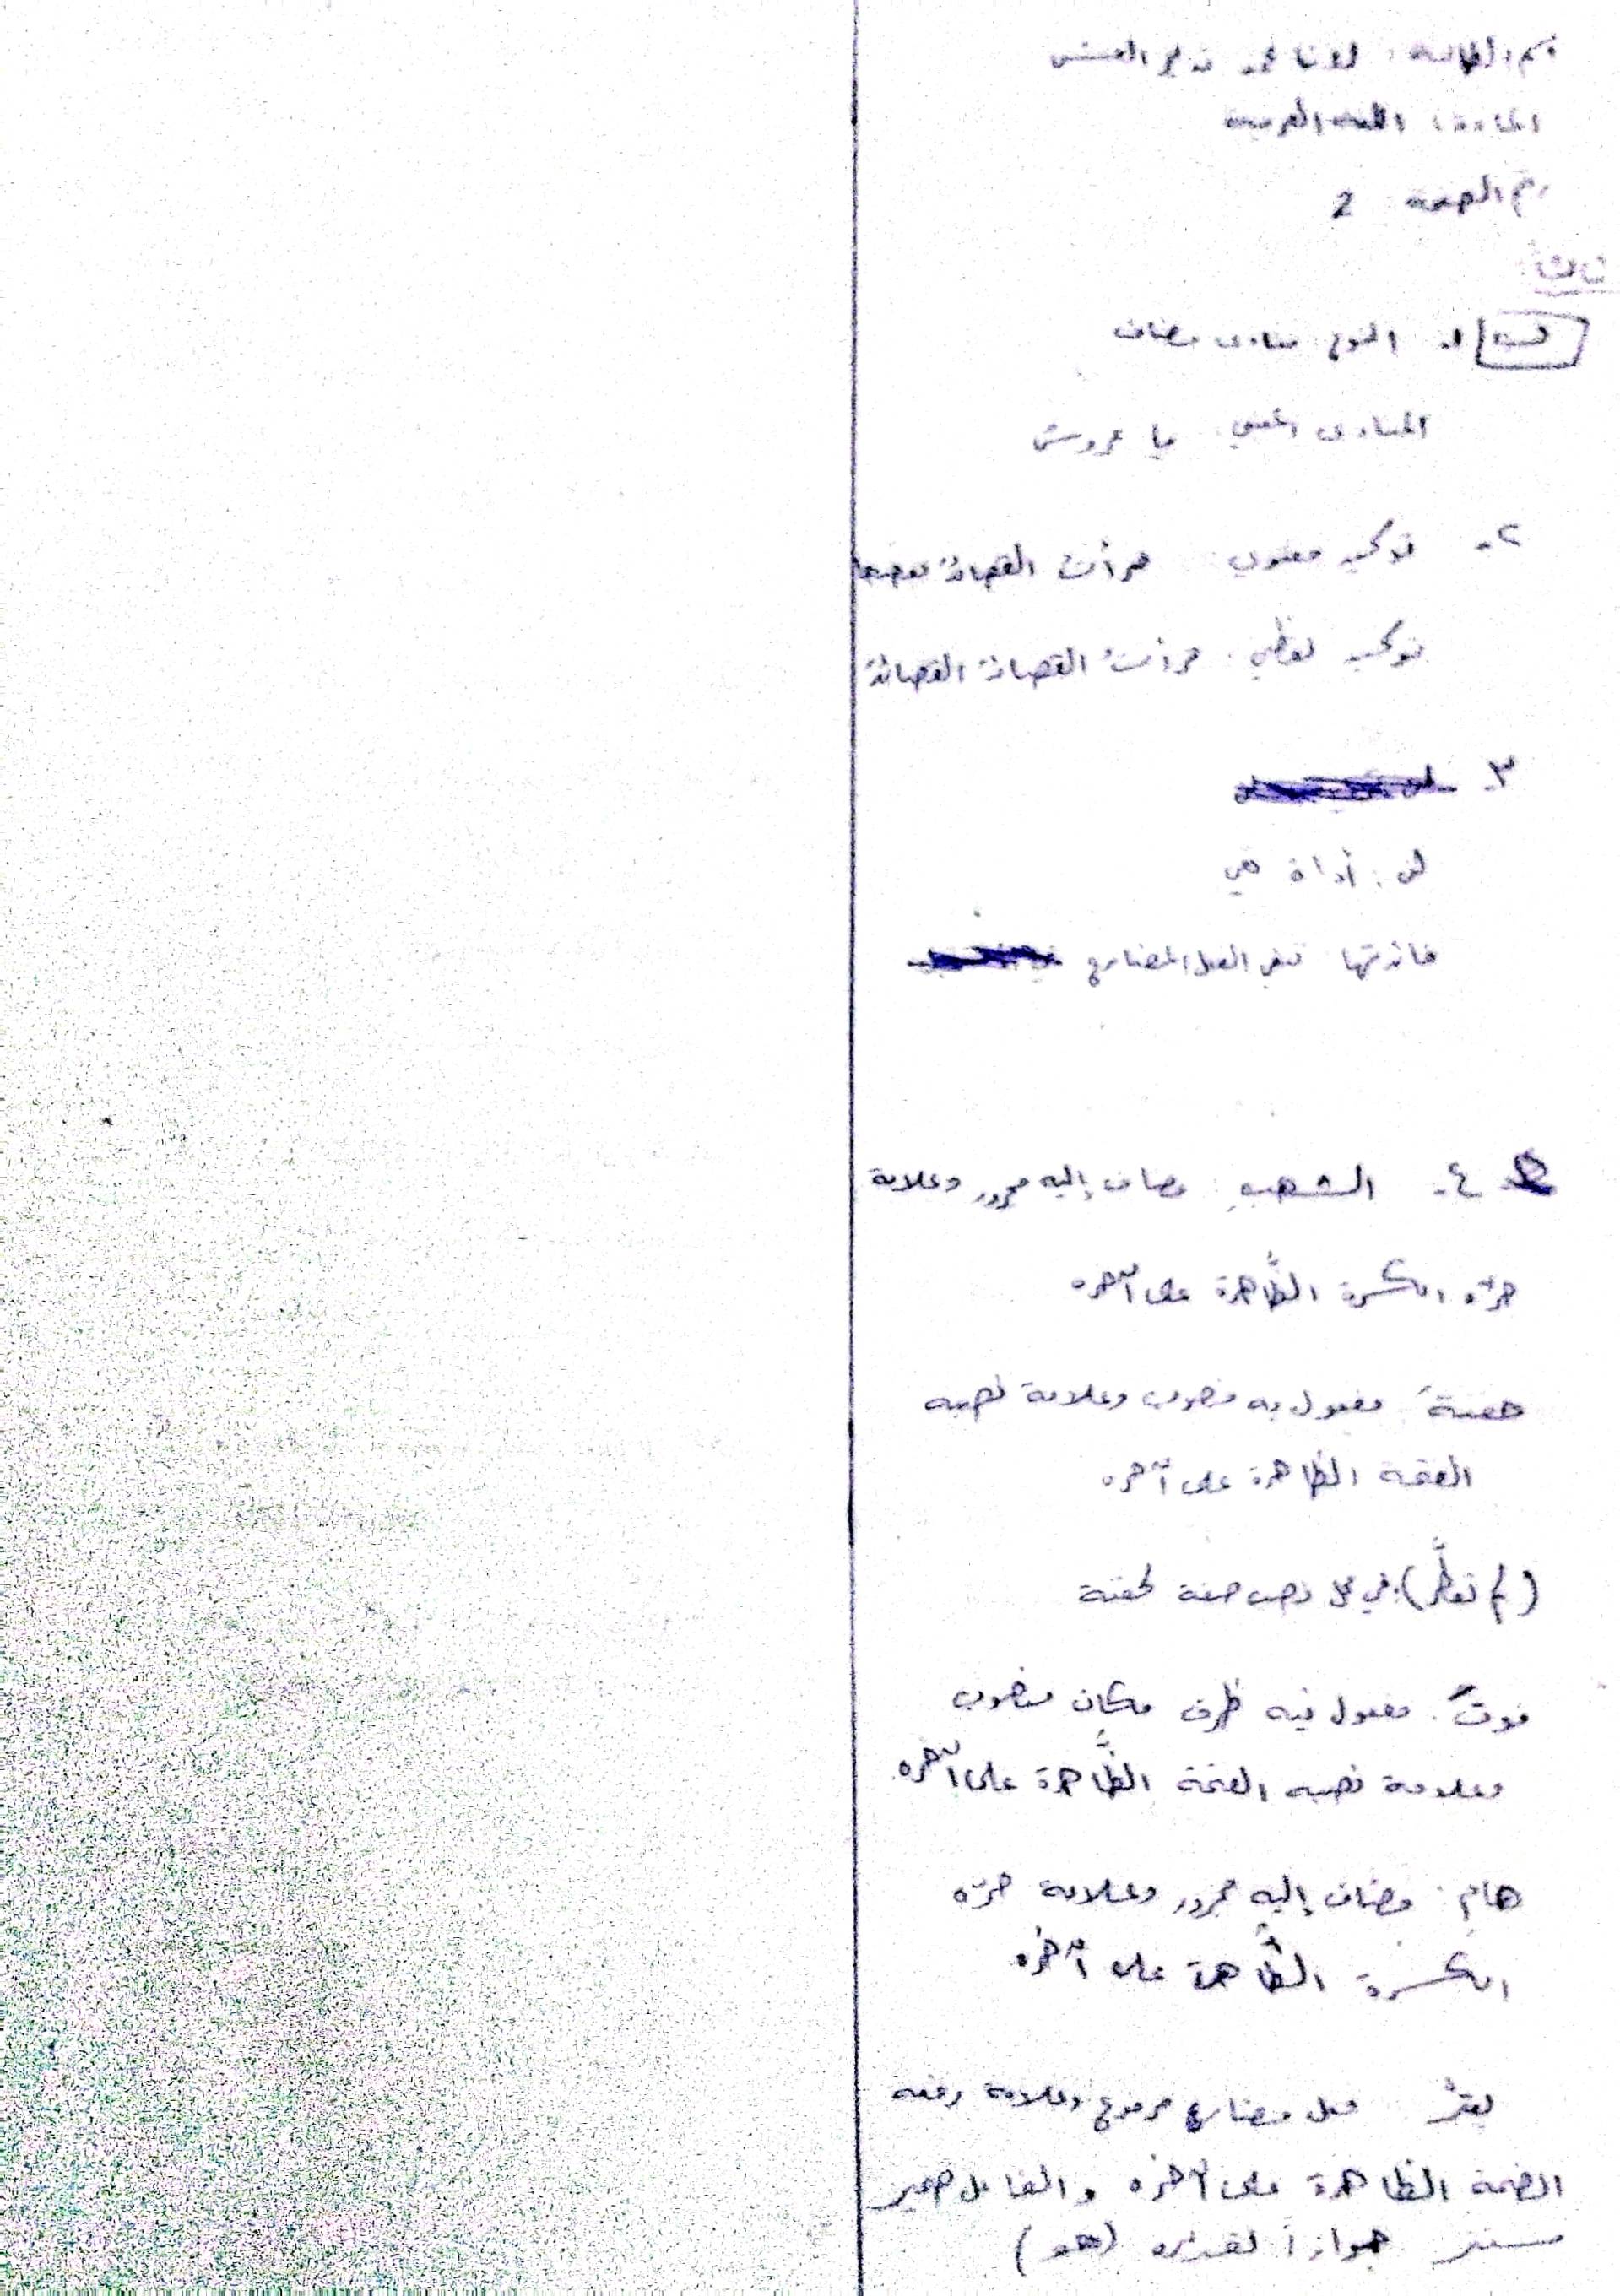 اسم الطالبة: محمد
المادة: اللغة العربية
رقم الصفحة: 2
ثالثاً:
1- النوع: منادى مضاف
المنادى المبني: يا عروس
2- توكيد معنوي: قرأت القصائد بعضها
توكيد لفظي: قرأتُ القصائدَ القصائدَ
3-
لن: أداة نفي
فائدتها تنفي الفعل المضارع
4- الشهبِ: مضاف إليه مجرور وعلامة
جرّه الكسرة الظَّاهرة على آخره
حفنةً: مفعول به منصوب وعلامة نصبه
الفتحة الظاهرة على آخره
(لم تعطَّر): في محل نصب صفة لحفنة
فوقَ: مفعول فيه ظرف مكان منصوب
وعلامة نصبه الفتحة الظَّاهرة على آخره
هامِ: مضاف إليه مجرور وعلامة جرّه
الكسرة الظَّاهرة على آخره
فعل مضارع مرفوع وعلامة رفعه
الضمة الظاهرة على آخره والفاعل ضمير
مستتر جوازاً تقديره (هو)